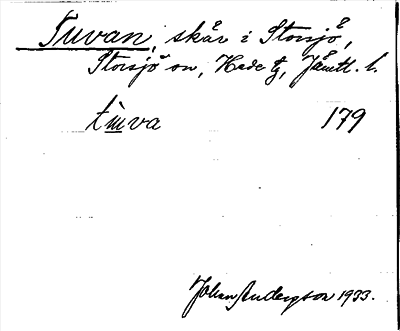 Tuvan, skär i Storsjö,
Storsjö sn, Hede tg, Jämtl. l.
tùva 179
Johan Anderzson 1933.